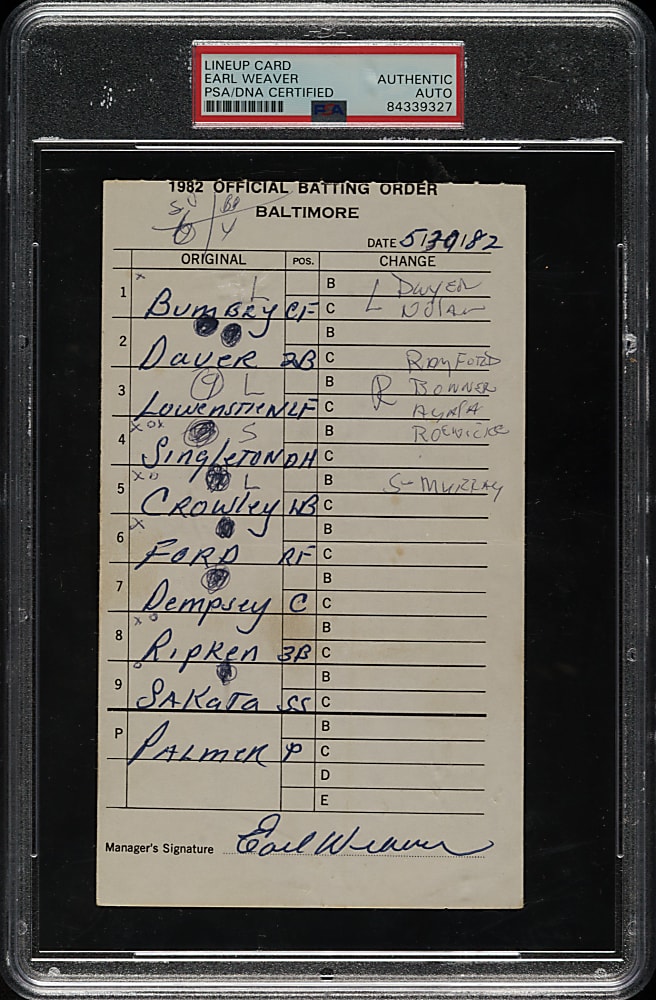 LINEUP CARD
EARL WEAVER AUTHENTIC
PSA/DNA CERTIFIED AUTO
PSA 84339327
1982 OFFICIAL BATTING ORDER
BALTIMORE
DATE 5/30/82
ORIGINAL POS. CHANGE
1 BUMBRY CF L B L DWYER
C NOLAN
2 DAUER 2B B
C RAYFORD
3 LOWENSTIEN LF L B R BONNER
C AYALA
4 SINGLETON DH S B ROENICKE
C
5 CROWLEY L B S-MURRAY
C
6 FORD RF B
C
7 DEMPSEY C B
C
8 RIPKEN 3B B
C
9 SAKATA SS B
C
P PALMER P B
C
D
E
Manager's Signature Earl Weaver